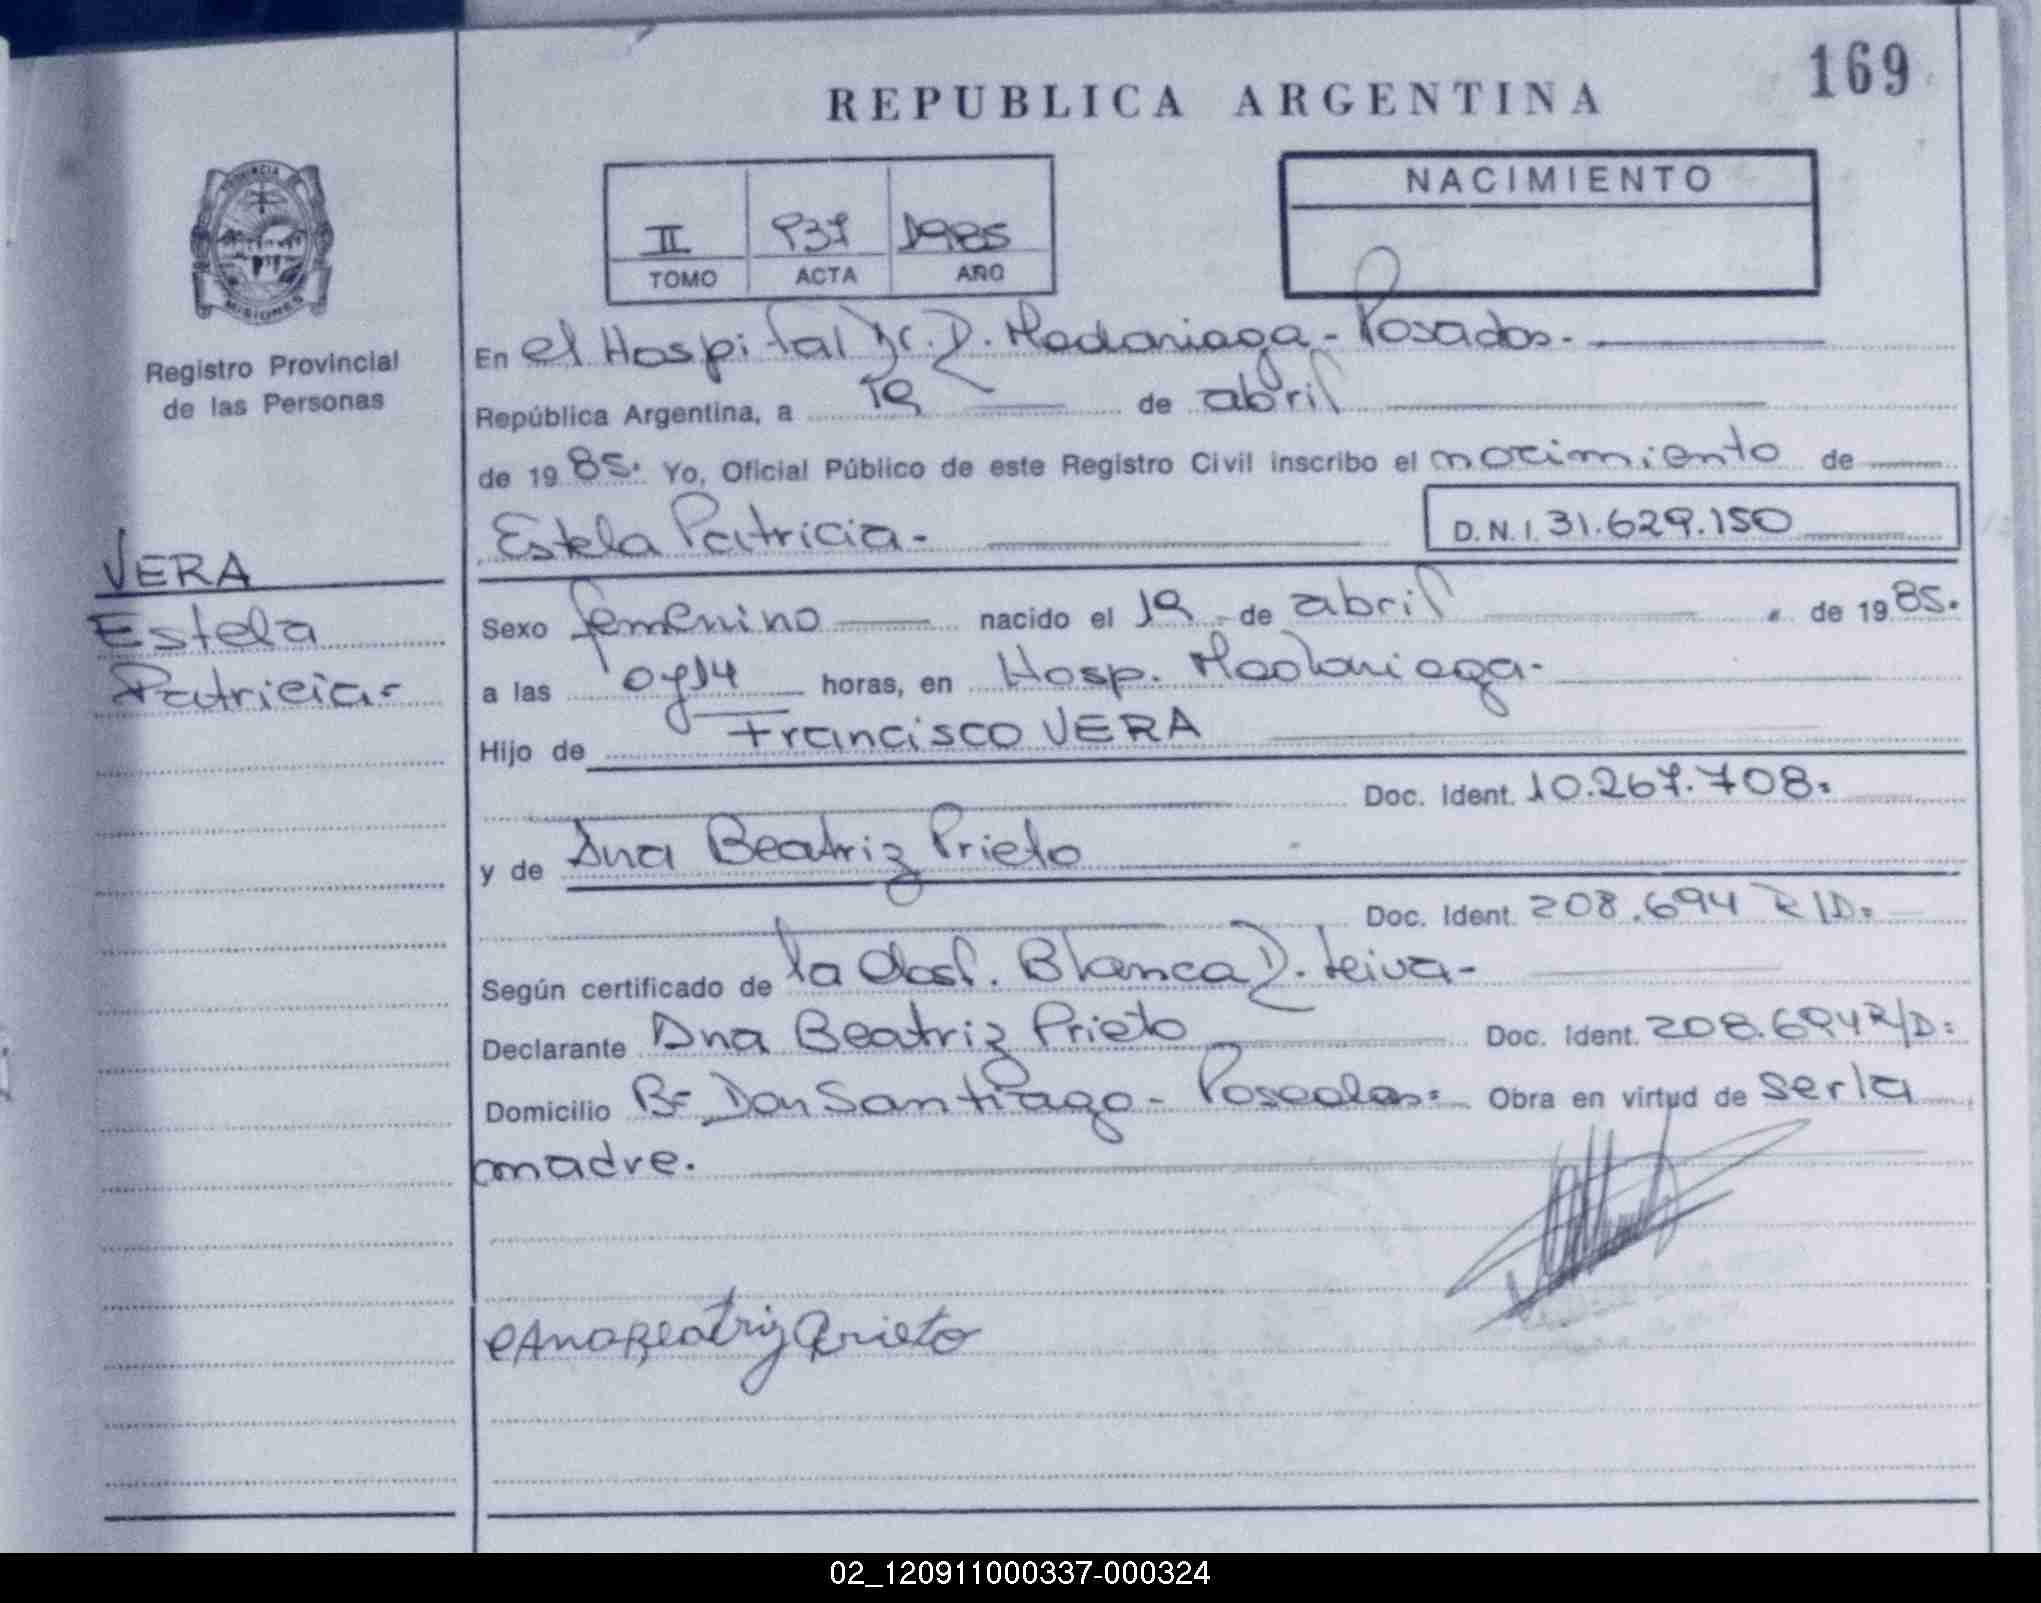 169
REPUBLICA ARGENTINA
PROVINCIA
MISIONES
Registro Provincial
de las Personas
II 937 1985
TOMO ACTA AÑO
NACIMIENTO
En el Hospital Dr. R. Madariaga - Posadas.-
República Argentina, a 19 de abril
de 1985. Yo, Oficial Público de este Registro Civil inscribo el nacimiento de
Estela Patricia.-
D.N.I. 31.629.150
VERA
Estela
Patricia.-
Sexo femenino nacido el 19 de abril de 1985.
a las horas, en Hosp. Madariaga.-
Hijo de Francisco VERA
Doc. Ident. 10.267.708.
y de Ana Beatriz Prieto
Doc. Ident. 208.694 R/D.
Según certificado de la Obst. Blanca R. Leiva-
Declarante Ana Beatriz Prieto Doc. Ident. 208.694 R/D.
Domicilio Bº Don Santiago - Posadas. Obra en virtud de ser la
madre.
Ana Beatriz Prieto
02_120911000337-000324